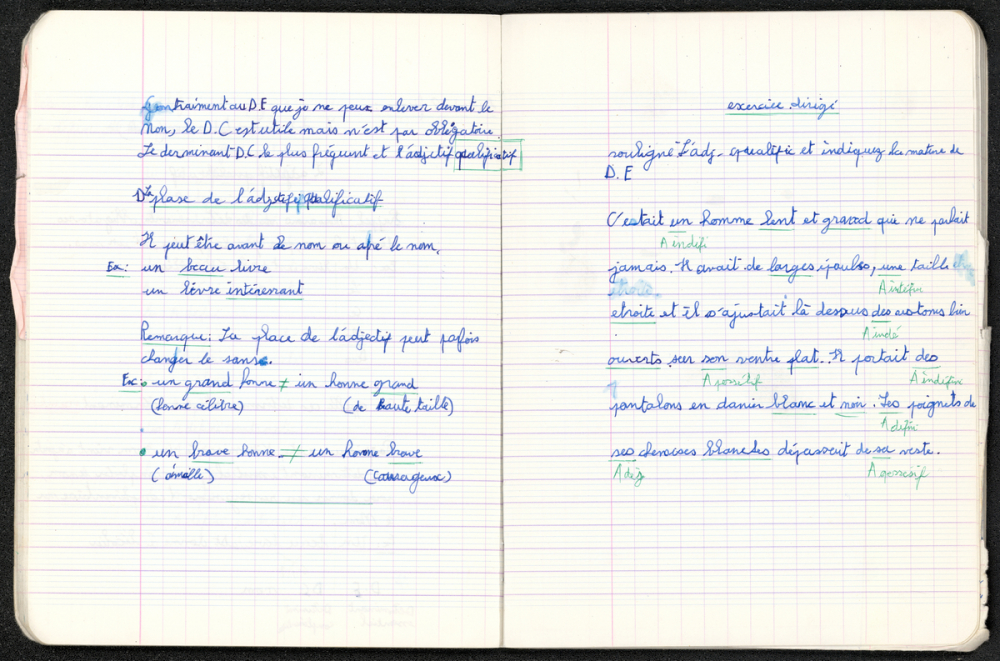 Contrairment au D.E que je ne peux enlever devant le
non, le D.C est utile mais n'est par obligatoire.
Le derminant D.C le plus fréquent et l'adjectif qualificatif
D La plase de l'adjectif qualificatif
Il peut être avant le nom ou apé le nom.
Ex: un beau livre
un livre intéressant
Remarque: La place de l'adjectif peut parfois
changer le sans.
Ex: un grand homme ≠ un honne grand
(homme célibre) (de haute taille)
un brave honne ≠ un homme brave
(courageux)
exercice dirigé
souligne l'adj. qualific et indiquez la nature de
D.E
C'estait un homme lent et grand que ne parlait
A indéfi
jamais. Il avait de larges épaules, une taille
A indéfini
etroite et il s'ajustait là dessus des vestons bien
A indé
ouverts sur son ventre plat. Il portait des
A possitif A indéfini
pantalons en damier blanc et noir. Les poignets de
A défini
ses chemises blanches dépassait de sa veste.
A déz A possessif